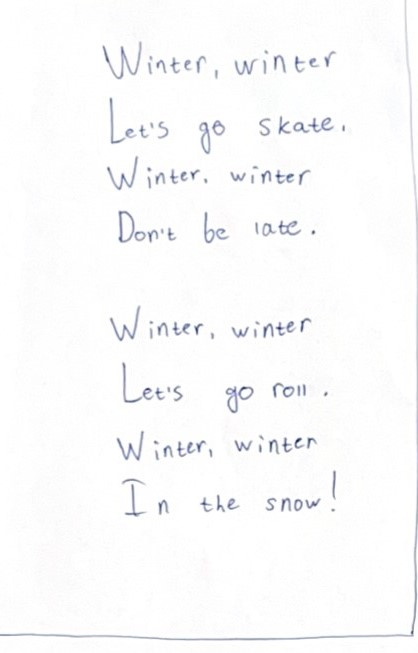 Winter, winter
Let's go skate.
Winter. winter
Don't be late.
Winter, winter
Let's go roll.
Winter, winter
In the snow!